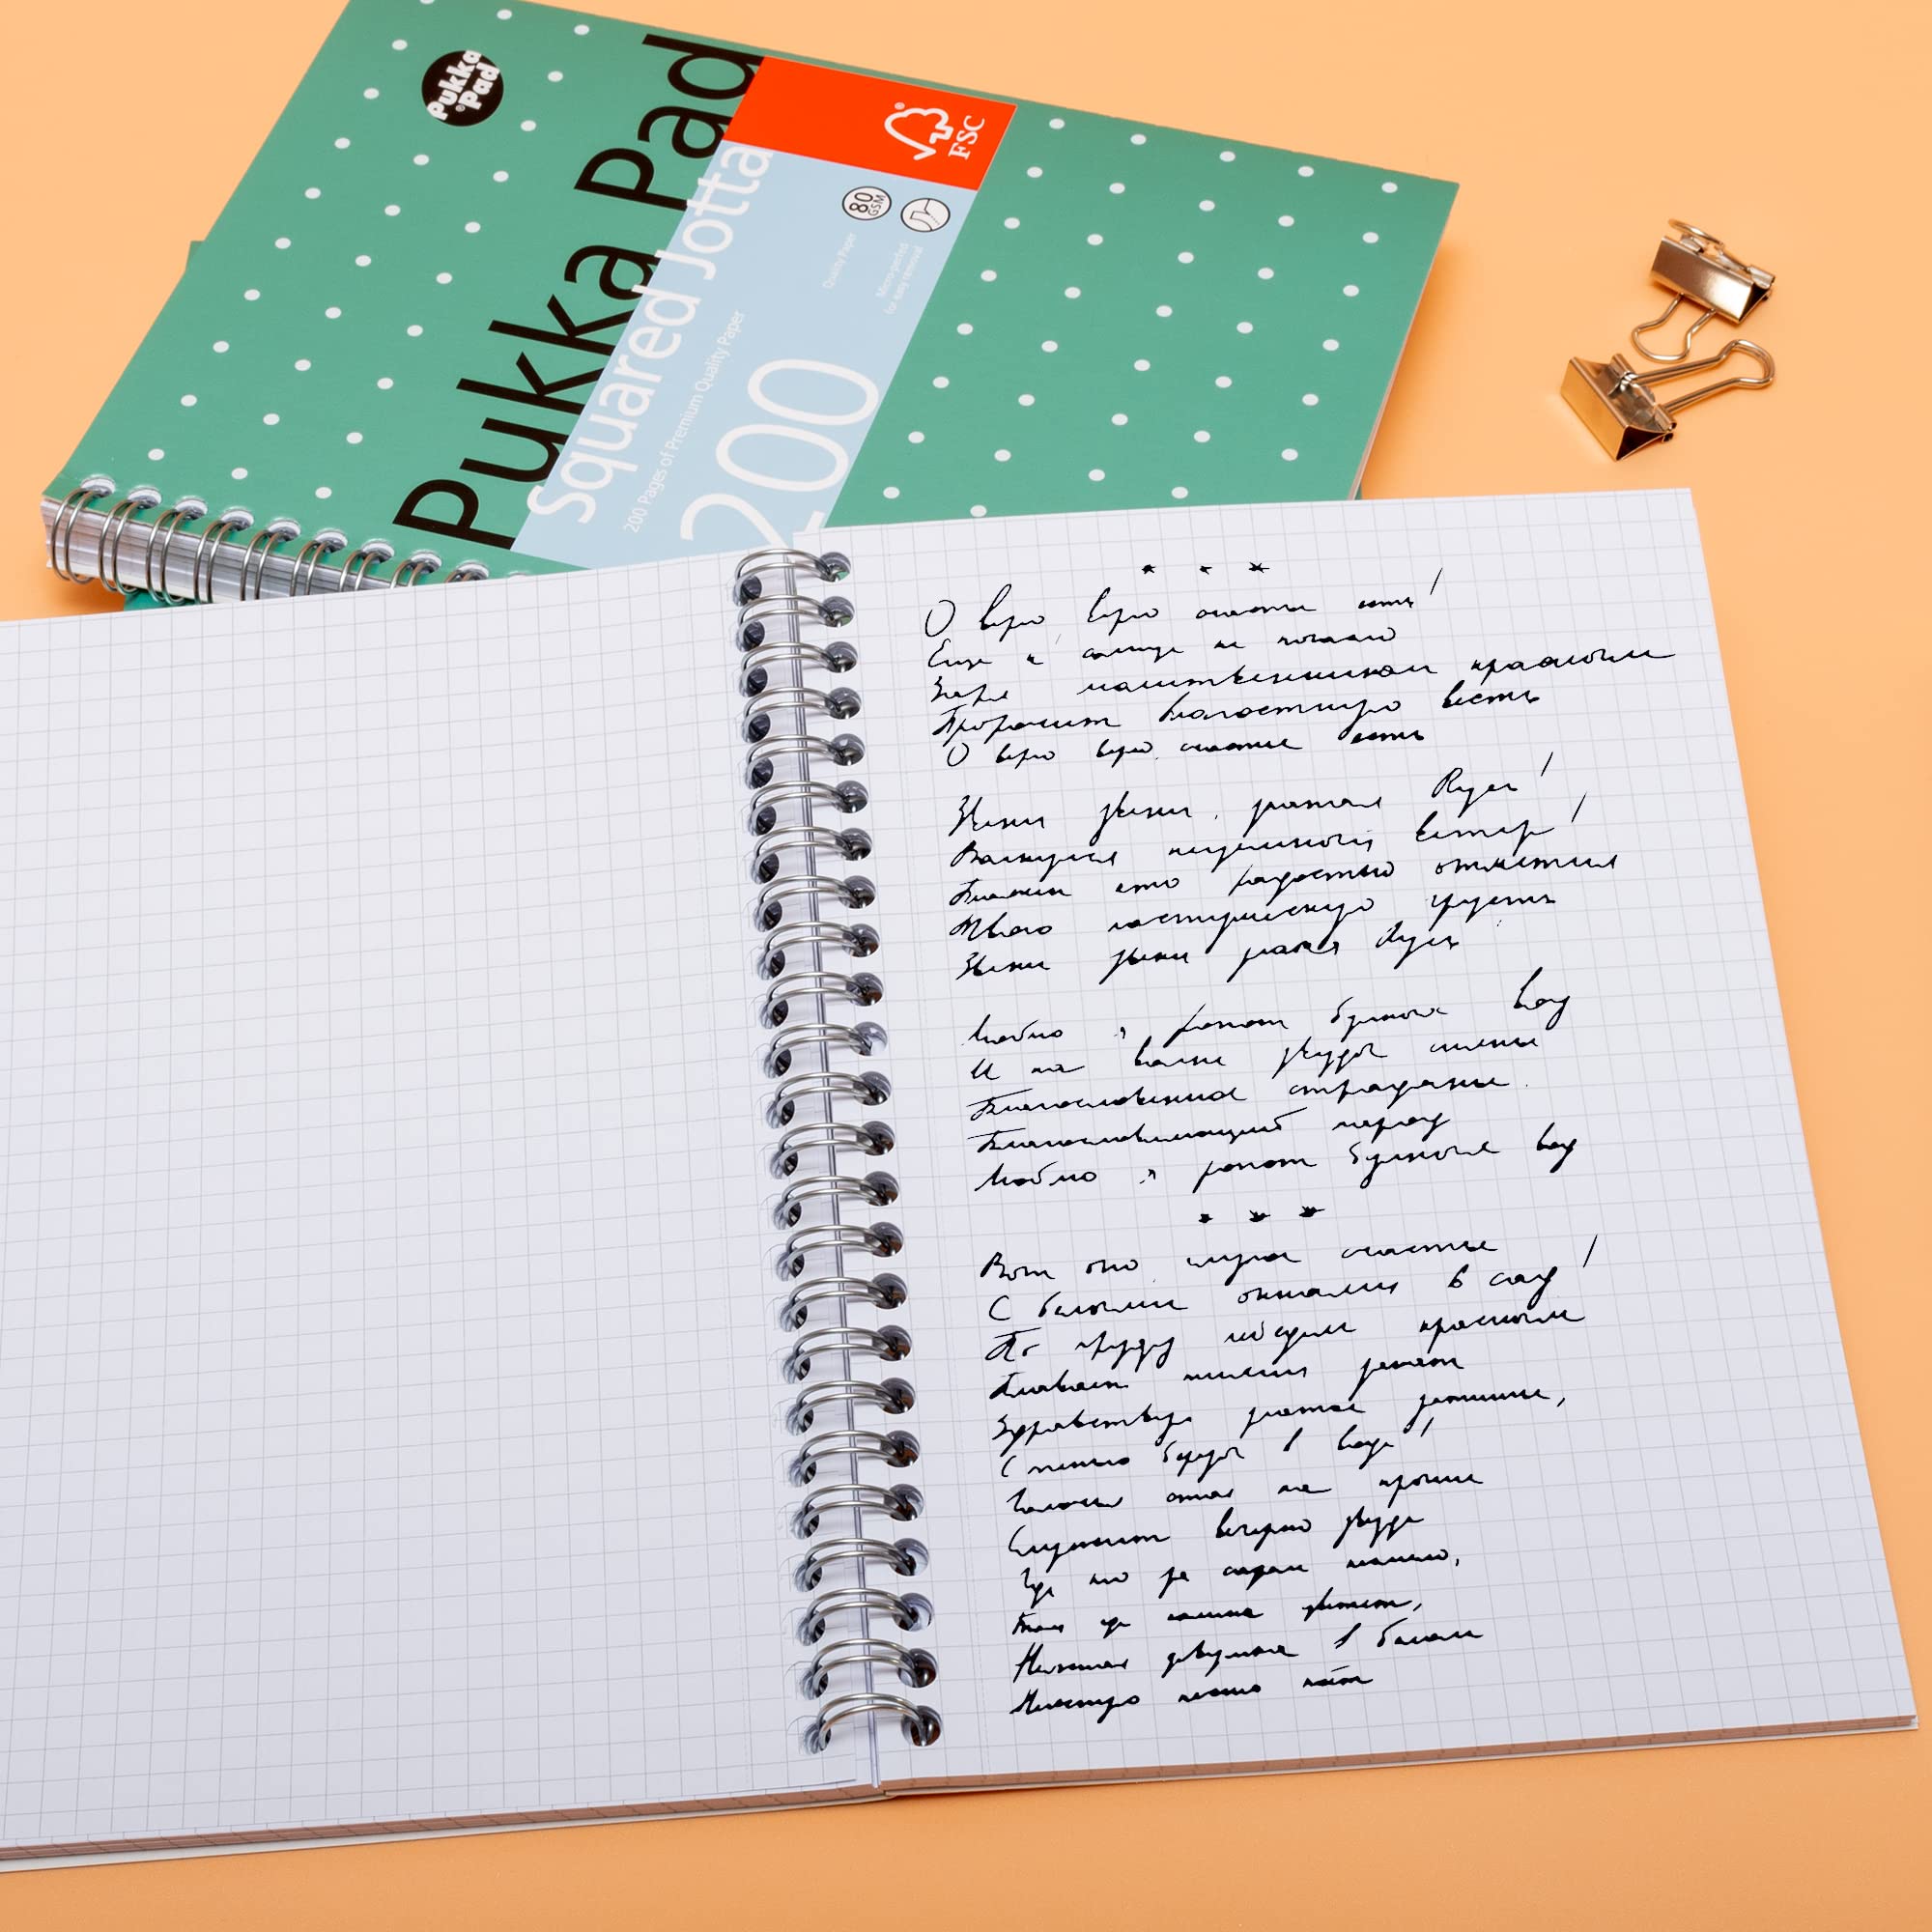 Pukka Pad
Pukka Pad
Squared Jotta
200 Pages of Premium Quality Paper
200
FSC
80 GSM
Quality Paper
Micro-perfed
for easy removal
* * *
О верю, верю счастье есть!
Еще и солнце не погасло
Заря молитвенником красным
Пророчит благостную весть
О верю верю, счастье есть
Звени звени, златая Русь!
Волнуйся неуемный ветер!
Блажен кто радостью отметил
Твою пастушескую грусть
Звени звени златая Русь
Люблю я ропот буйных вод
И на волне звезды сиянье
Благословенное страданье.
Благословляющий народ
Люблю я ропот буйных вод
* * *
Вот оно, глупое счастье
С белыми окнами в сад!
По пруду лебедем красным
Плавает тихий закат
Здравствуй златое затишье,
С тенью березы в воде!
Галочья стая на крыше
Служит вечерню звезде
Где то за садом несмело,
Там где калина цветет,
Нежная девушка в белом
Нежную песню поёт